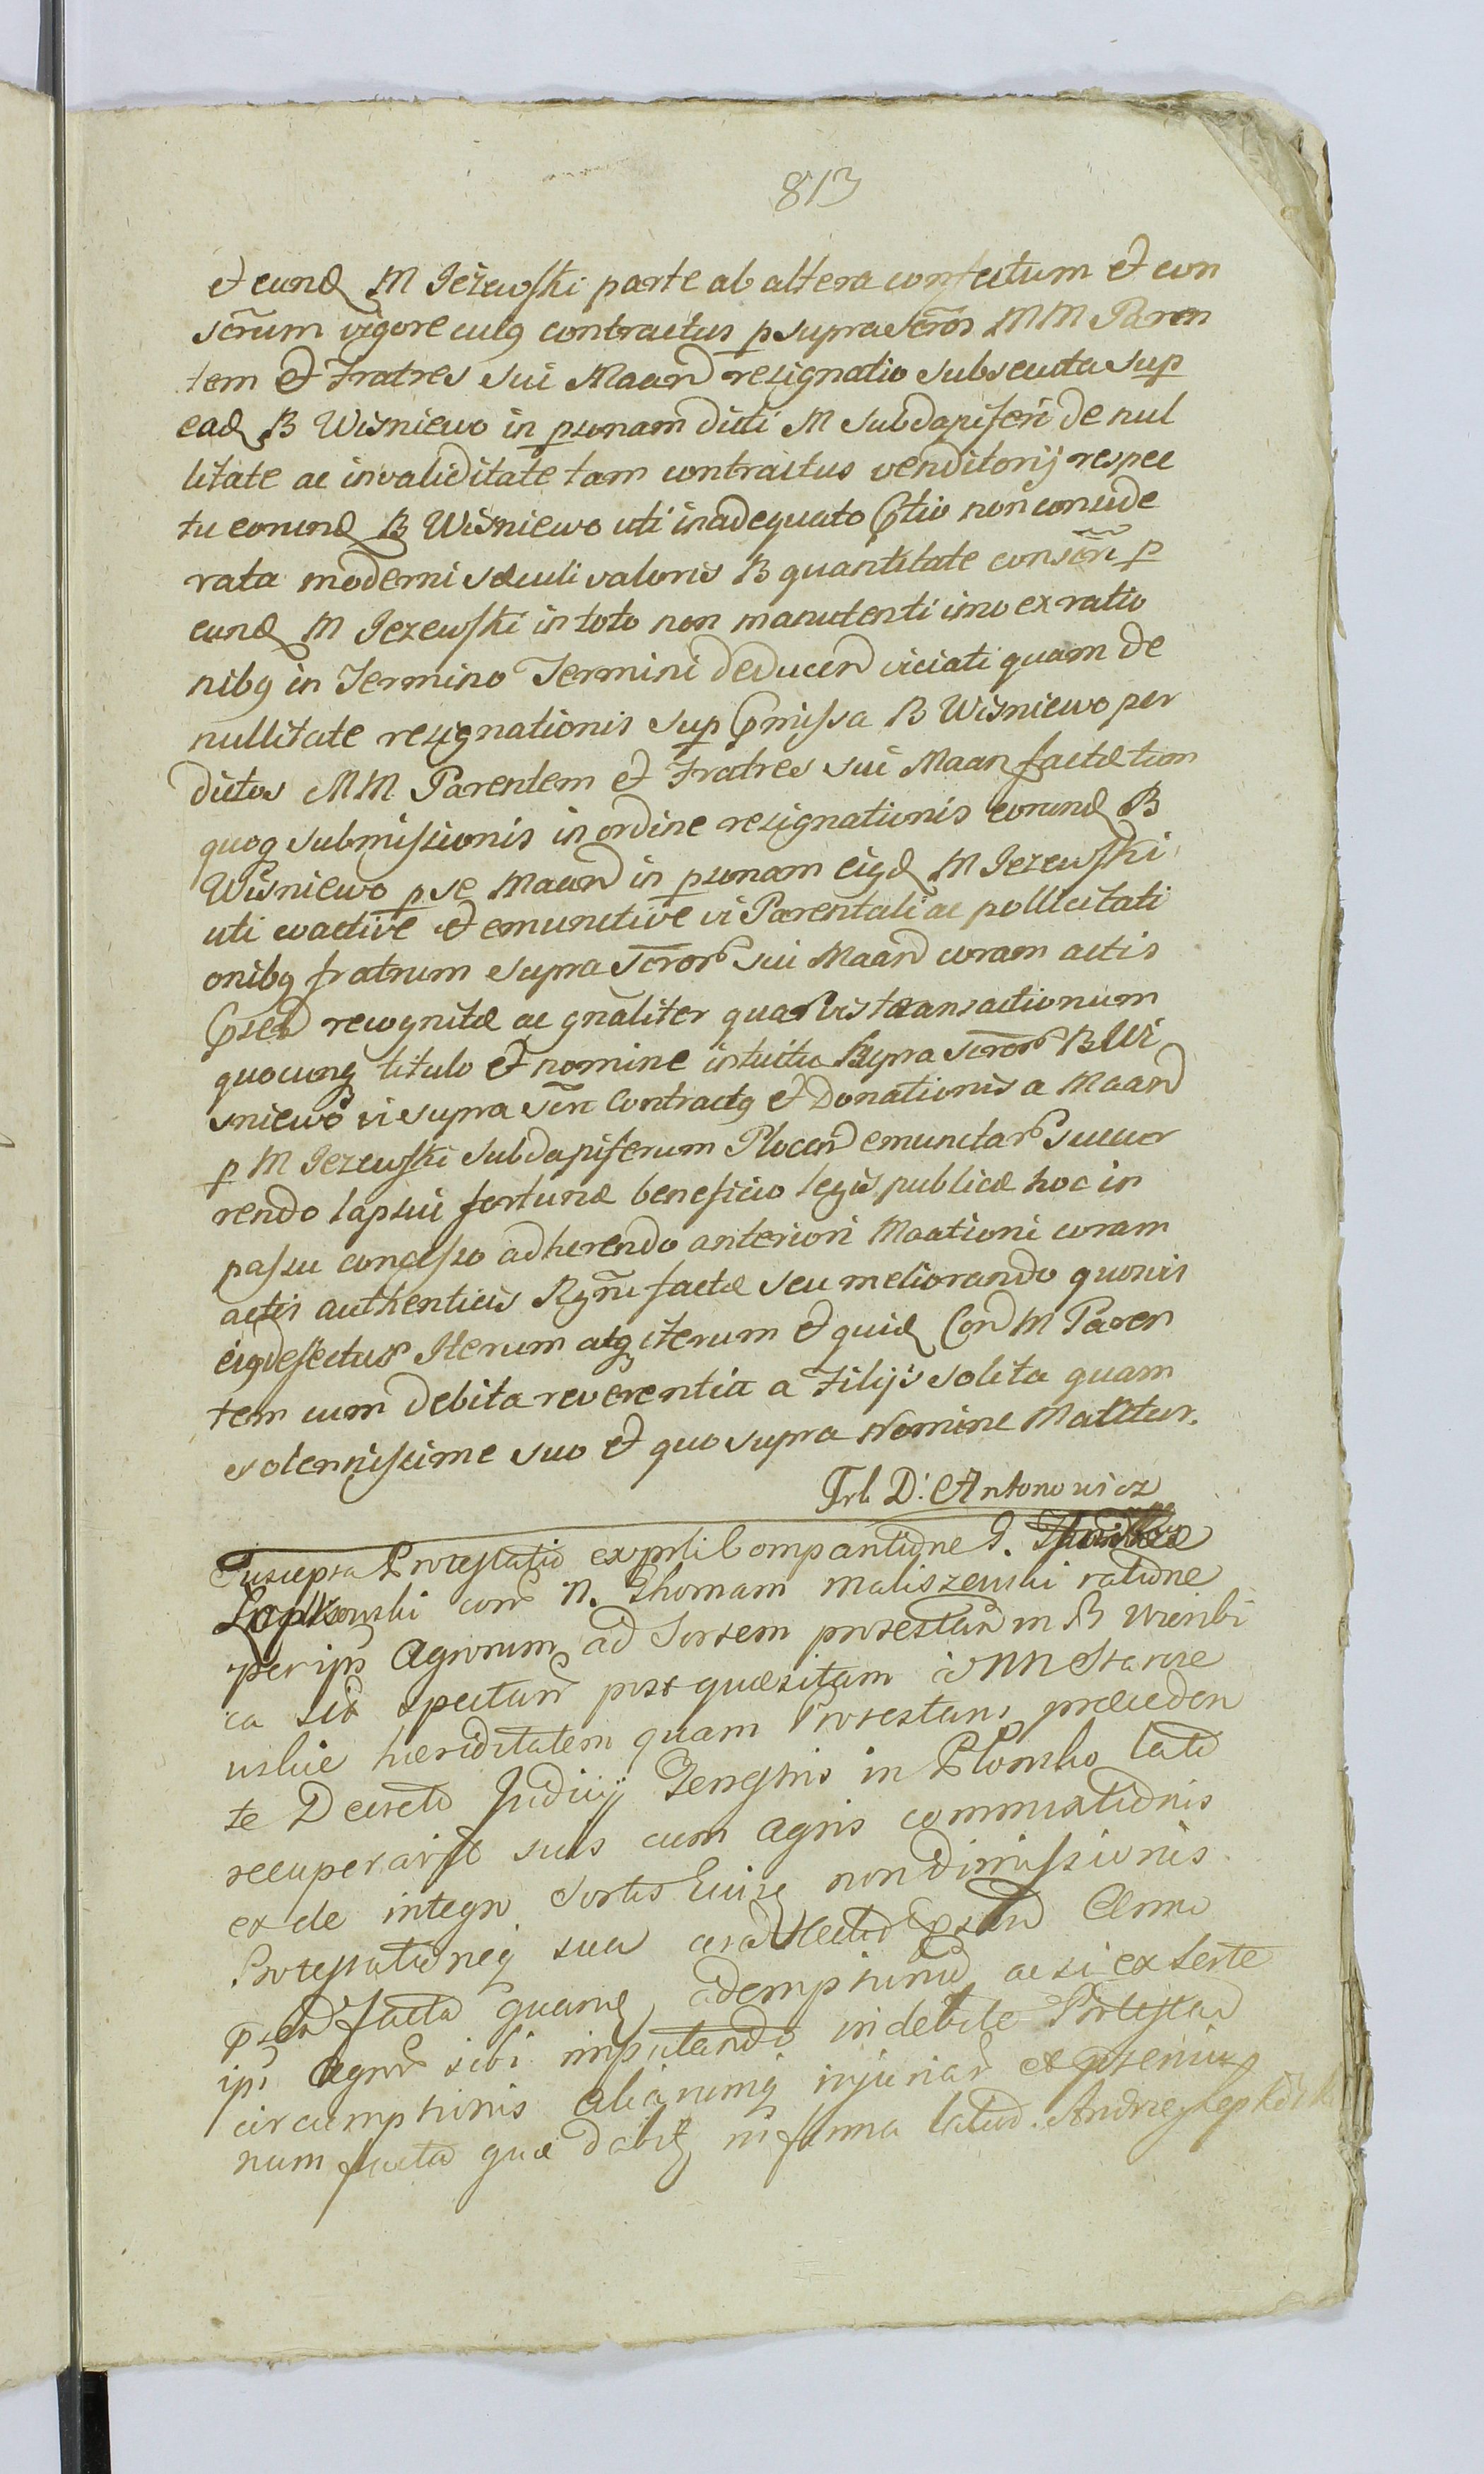 813
et eund M Jeżewski parte ab altera confectum et con
scrum vigore cuiq contractus p suprascros MM Paren
tem et Fratres sui Maand resignatio subsecuta sup
ead B Wisniewo in psonam dicti M Subdapiferi de nul
litate ac invaliditate tam contractus venditorij respec
tu eorund B Wisniewo uti inadequato Ptio non conside
rata moderni sæculi valoris B quantitate conscri p
eund M Jezewski in toto non manutenti imo ex ratio
nibq in Termino Termini deducend viciati quam de
nullitate resignationis sup Pmissa B Wisniewo per
dictos MM Parentem et Fratres sui Maan factæ tum
quoq submissionis in ordine resignationis eorund B
Wisniewo p se Maand in psonam eiqd M Jezewski
uti coactive et emunctive vi Parentali ac pollicitati
onibq fratrum supra scror sui Maand coram actis
Psed recognitæ ac gnaliter quarvis transactionum
quocunq titulo et nomine intuitu supra scror B Wi
sniewo vi supra scri Contractq et Donationis a Maand
p M Jezewski Subdapiferum Plocen emunctar succur
rendo lapsui fortunæ beneficio legis publicæ hoc in
passu concesso adhærendo anteriori Maationi coram
actis authenticis Rgni factæ seu meliorando quovis
eiq defectus Iterum atq iterum et quid Con M Paren
tem cum debita reverentia a Filijs solita quam
solennissime suo et quo supra Nomine Matttur.
D: Antonowicz
Suscepta Protestatio ex prti Compantione G.
con N. Thomam Maliszewski ratione
agrorum ad Sortem protestan in B
ca post quæsitam a NN
hæreditatem quam Protestans præceden
te Decreto Judicij Terrestris in Plonsko lato
recuperavit suis cum agris commixtionis
ex de integro Sortis non dimissionis
Protestationeq sua Anno
facta ademptionis
agror sibi imputando indebite Protestan
aliarumq injuriar et
num facta quæ dabit in forma latiori. Andrzej